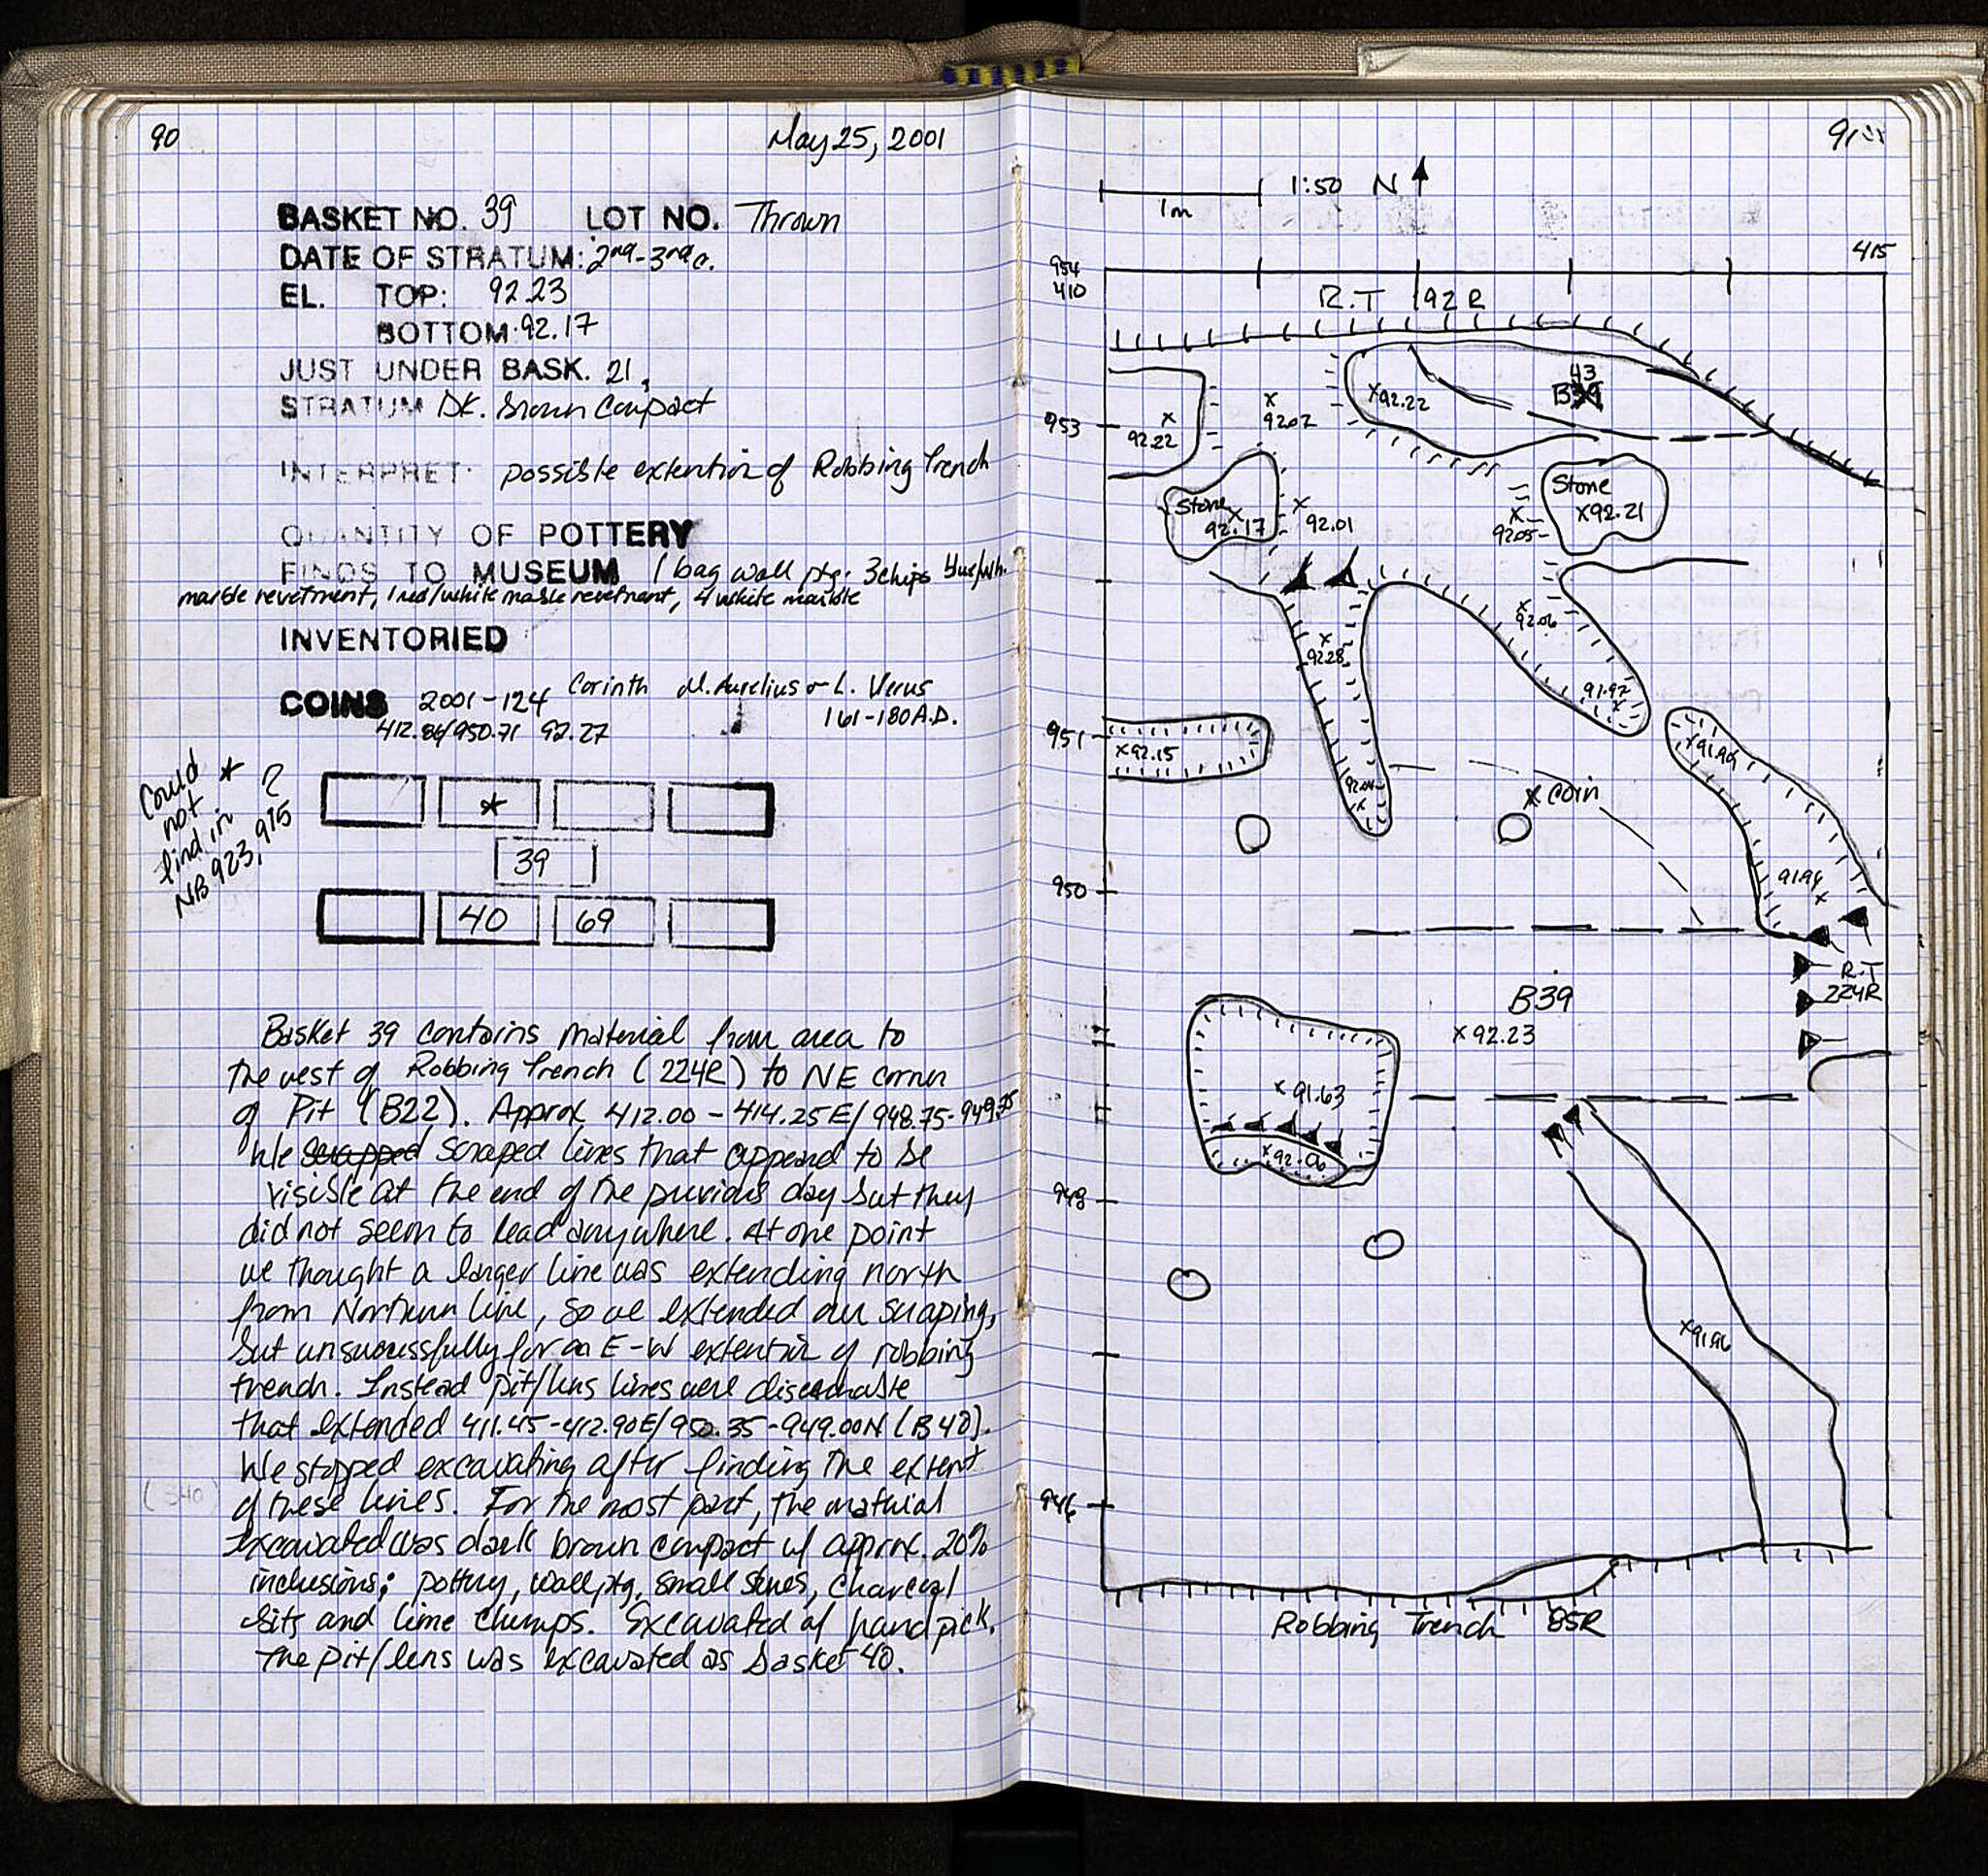 90
May 25, 2001
BASKET NO. 39 LOT NO. Thrown
DATE OF STRATUM: 2nd-3rd c.
EL. TOP: 92.23
BOTTOM: 92.17
JUST UNDER BASK. 21,
STRATUM Dk. Brown Compact
INTERPRET: possible extention of Robbing Trench
QUANTITY OF POTTERY
FINDS TO MUSEUM 1 bag wall ptg. 3 chips blue/wh.
marble revetment, 1 red/white marble revetment, 4 white marble
INVENTORIED
COINS 2001-124 Corinth M. Aurelius or L. Verus
161-180 A.D.
412.86/950.71 92.27
Could * ?
not
find in
NB 923, 975
*
39
40 69
Basket 39 contains material from area to
the west of Robbing Trench (224R) to NE corner
of Pit (B22). Approx. 412.00-414.25E/948.75-949.75
We scrapped scraped lines that appeared to be
visible at the end of the previous day but they
did not seem to lead anywhere. At one point
we thought a larger line was extending north
from Northern line, so we extended our scraping,
but unsuccessfully for an E-W extention of robbing
trench. Instead pit/lens lines were discernable
that extended 411.45-412.90E/950.35-949.00N (B40).
We stopped excavating after finding the extent
of these lines. For the most part, the material
excavated was dark brown compact w/ approx. 20%
inclusions; pottery, wall ptg, small stones, charcoal
bits and lime chumps. Excavated w/ hand pick.
The pit/lens was excavated as basket 40.
91
1:50 N
1m
954
410
415
R.T 192R
43
B39
x92.22
953
x
92.22
x
92.07
Stone
x
92.17
x
92.01
x
92.05
Stone
x92.21
x
92.06
x
92.28
91.97
x
951
x92.15
x91.94
x coin
950
91.94
x
R.T
224R
B39
x92.23
x91.63
x92.06
948
x91.96
946
Robbing Trench 85R